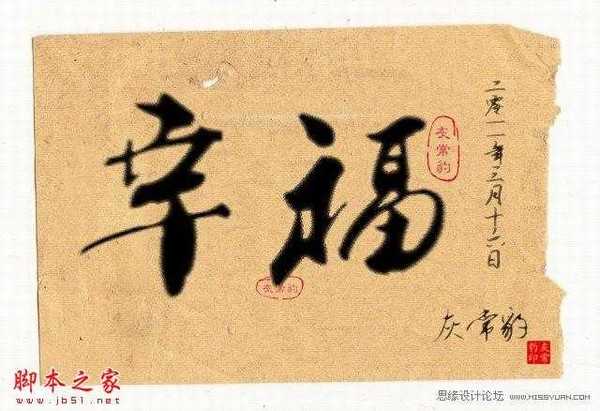 幸福
灰常豹
二零一一年三月十六日
灰常豹
灰常豹
灰常豹印
脚本之家
www.jb51.net
思缘设计论坛 WWW.MISSYUAN.COM